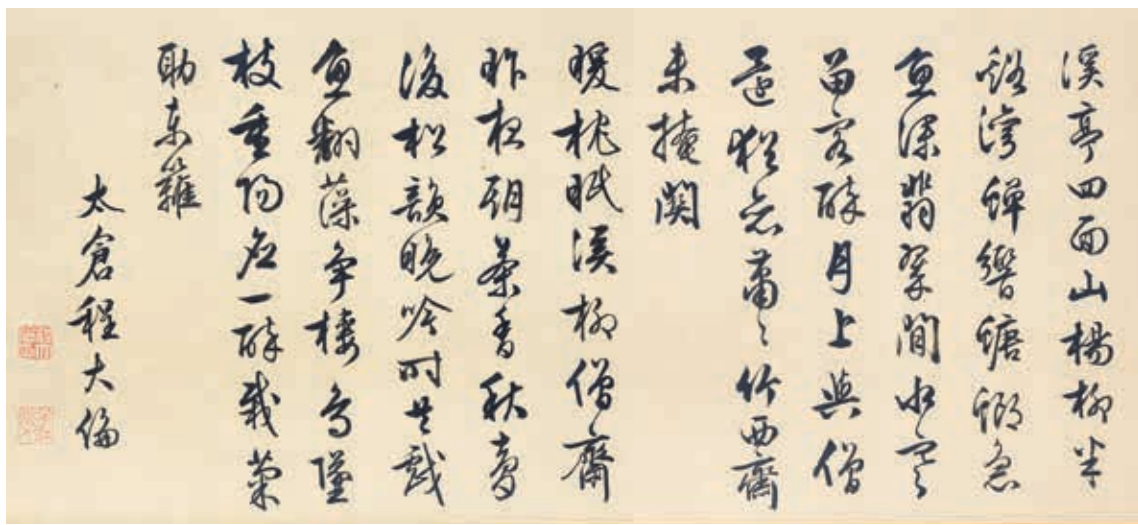 溪亭四面山楊柳半
谿灣蟬響螗螂急
魚深翡翠閒水寒
留客醉月上與僧
還猶戀蕭〻竹西齋
未掩關
暖枕眠溪柳僧齋
昨夜期茶香秋夢
後松韻晚吟時共戲
魚翻藻爭棲鳥墜
枝重陽應一醉栽菊
助東籬
太倉程大倫